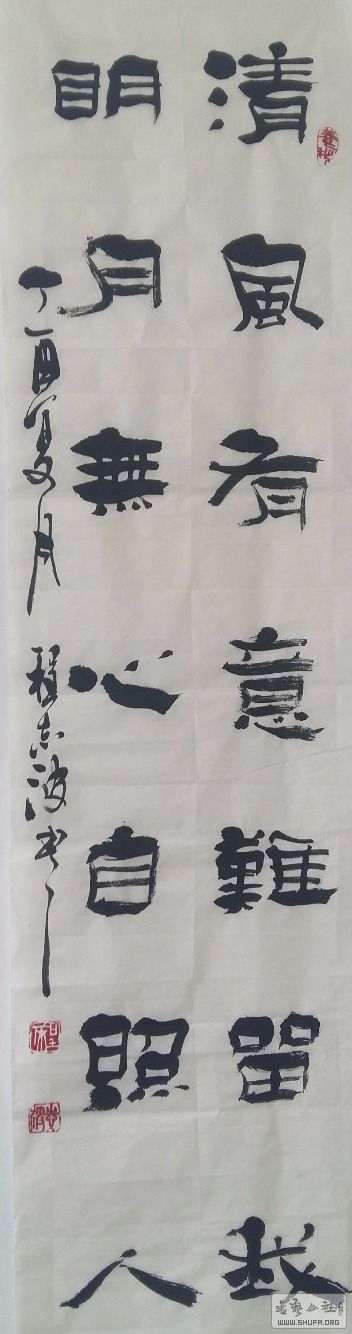 清風有意難留我
明月無心自照人
丁酉夏月 程志波书
書艺公社
WWW.SHUFA.ORG